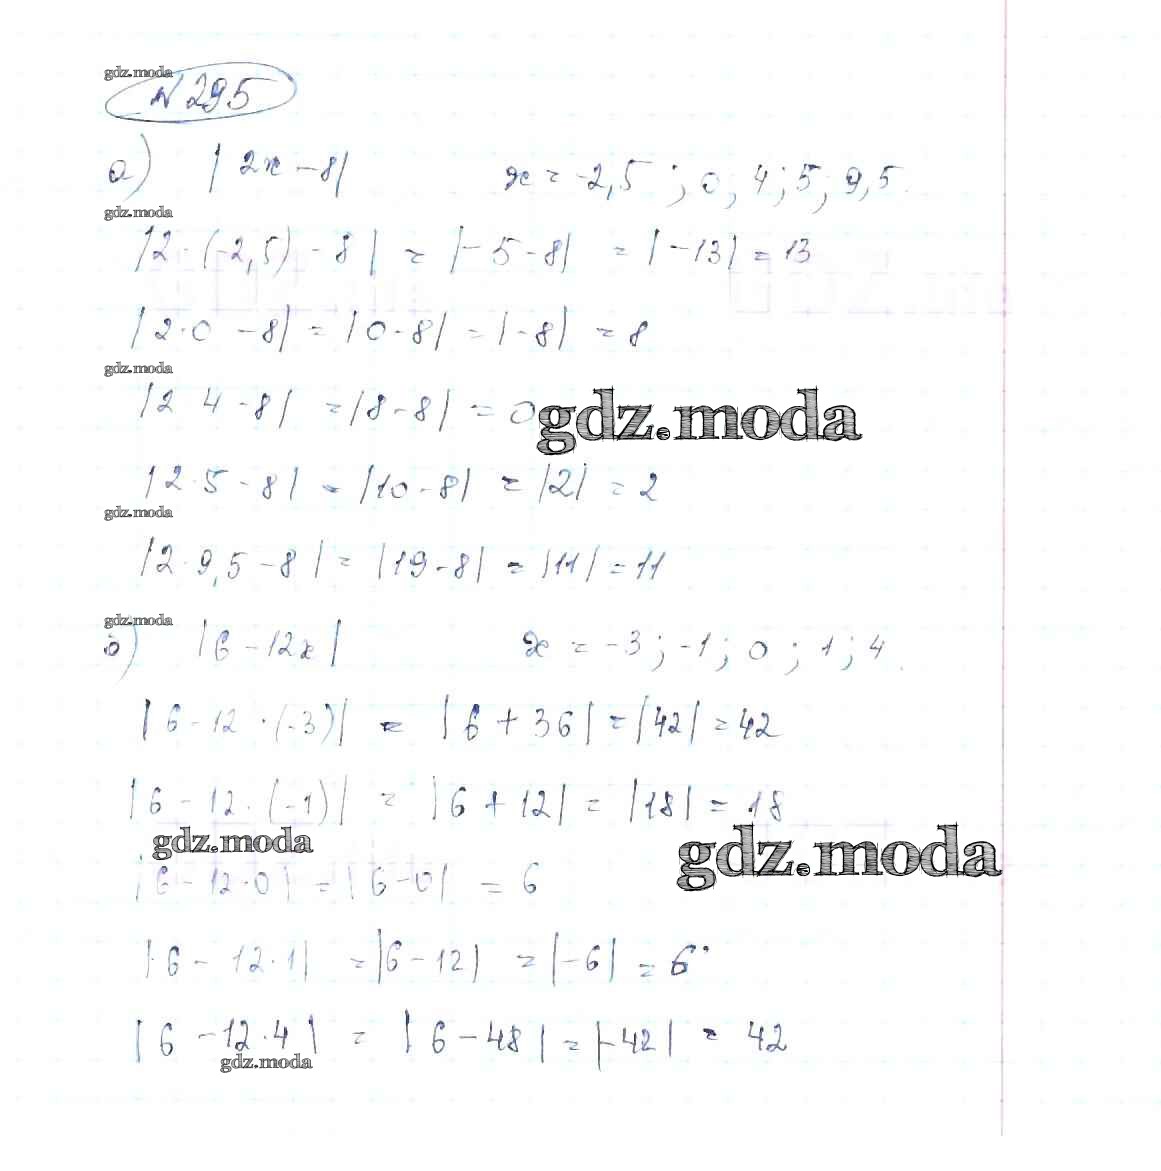 gdz.moda
№295
а) |2x-8| x = -2,5; 0; 4; 5; 9,5.
gdz.moda
|2·(-2,5)-8| = |-5-8| = |-13| = 13
|2·0-8| = |0-8| = |-8| = 8
gdz.moda
|2 4-8| = |8-8| = 0
gdz.moda
|2·5-8| = |10-8| = |2| = 2
gdz.moda
|2·9,5-8| = |19-8| = |11| = 11
gdz.moda
б) |6-12x| x = -3; -1; 0; 1; 4.
|6-12·(-3)| = |6+36| = |42| = 42
|6-12·(-1)| = |6+12| = |18| = 18
gdz.moda
gdz.moda
|6-12·0| = |6-0| = 6
|6-12·1| = |6-12| = |-6| = 6
|6-12·4| = |6-48| = |-42| = 42
gdz.moda